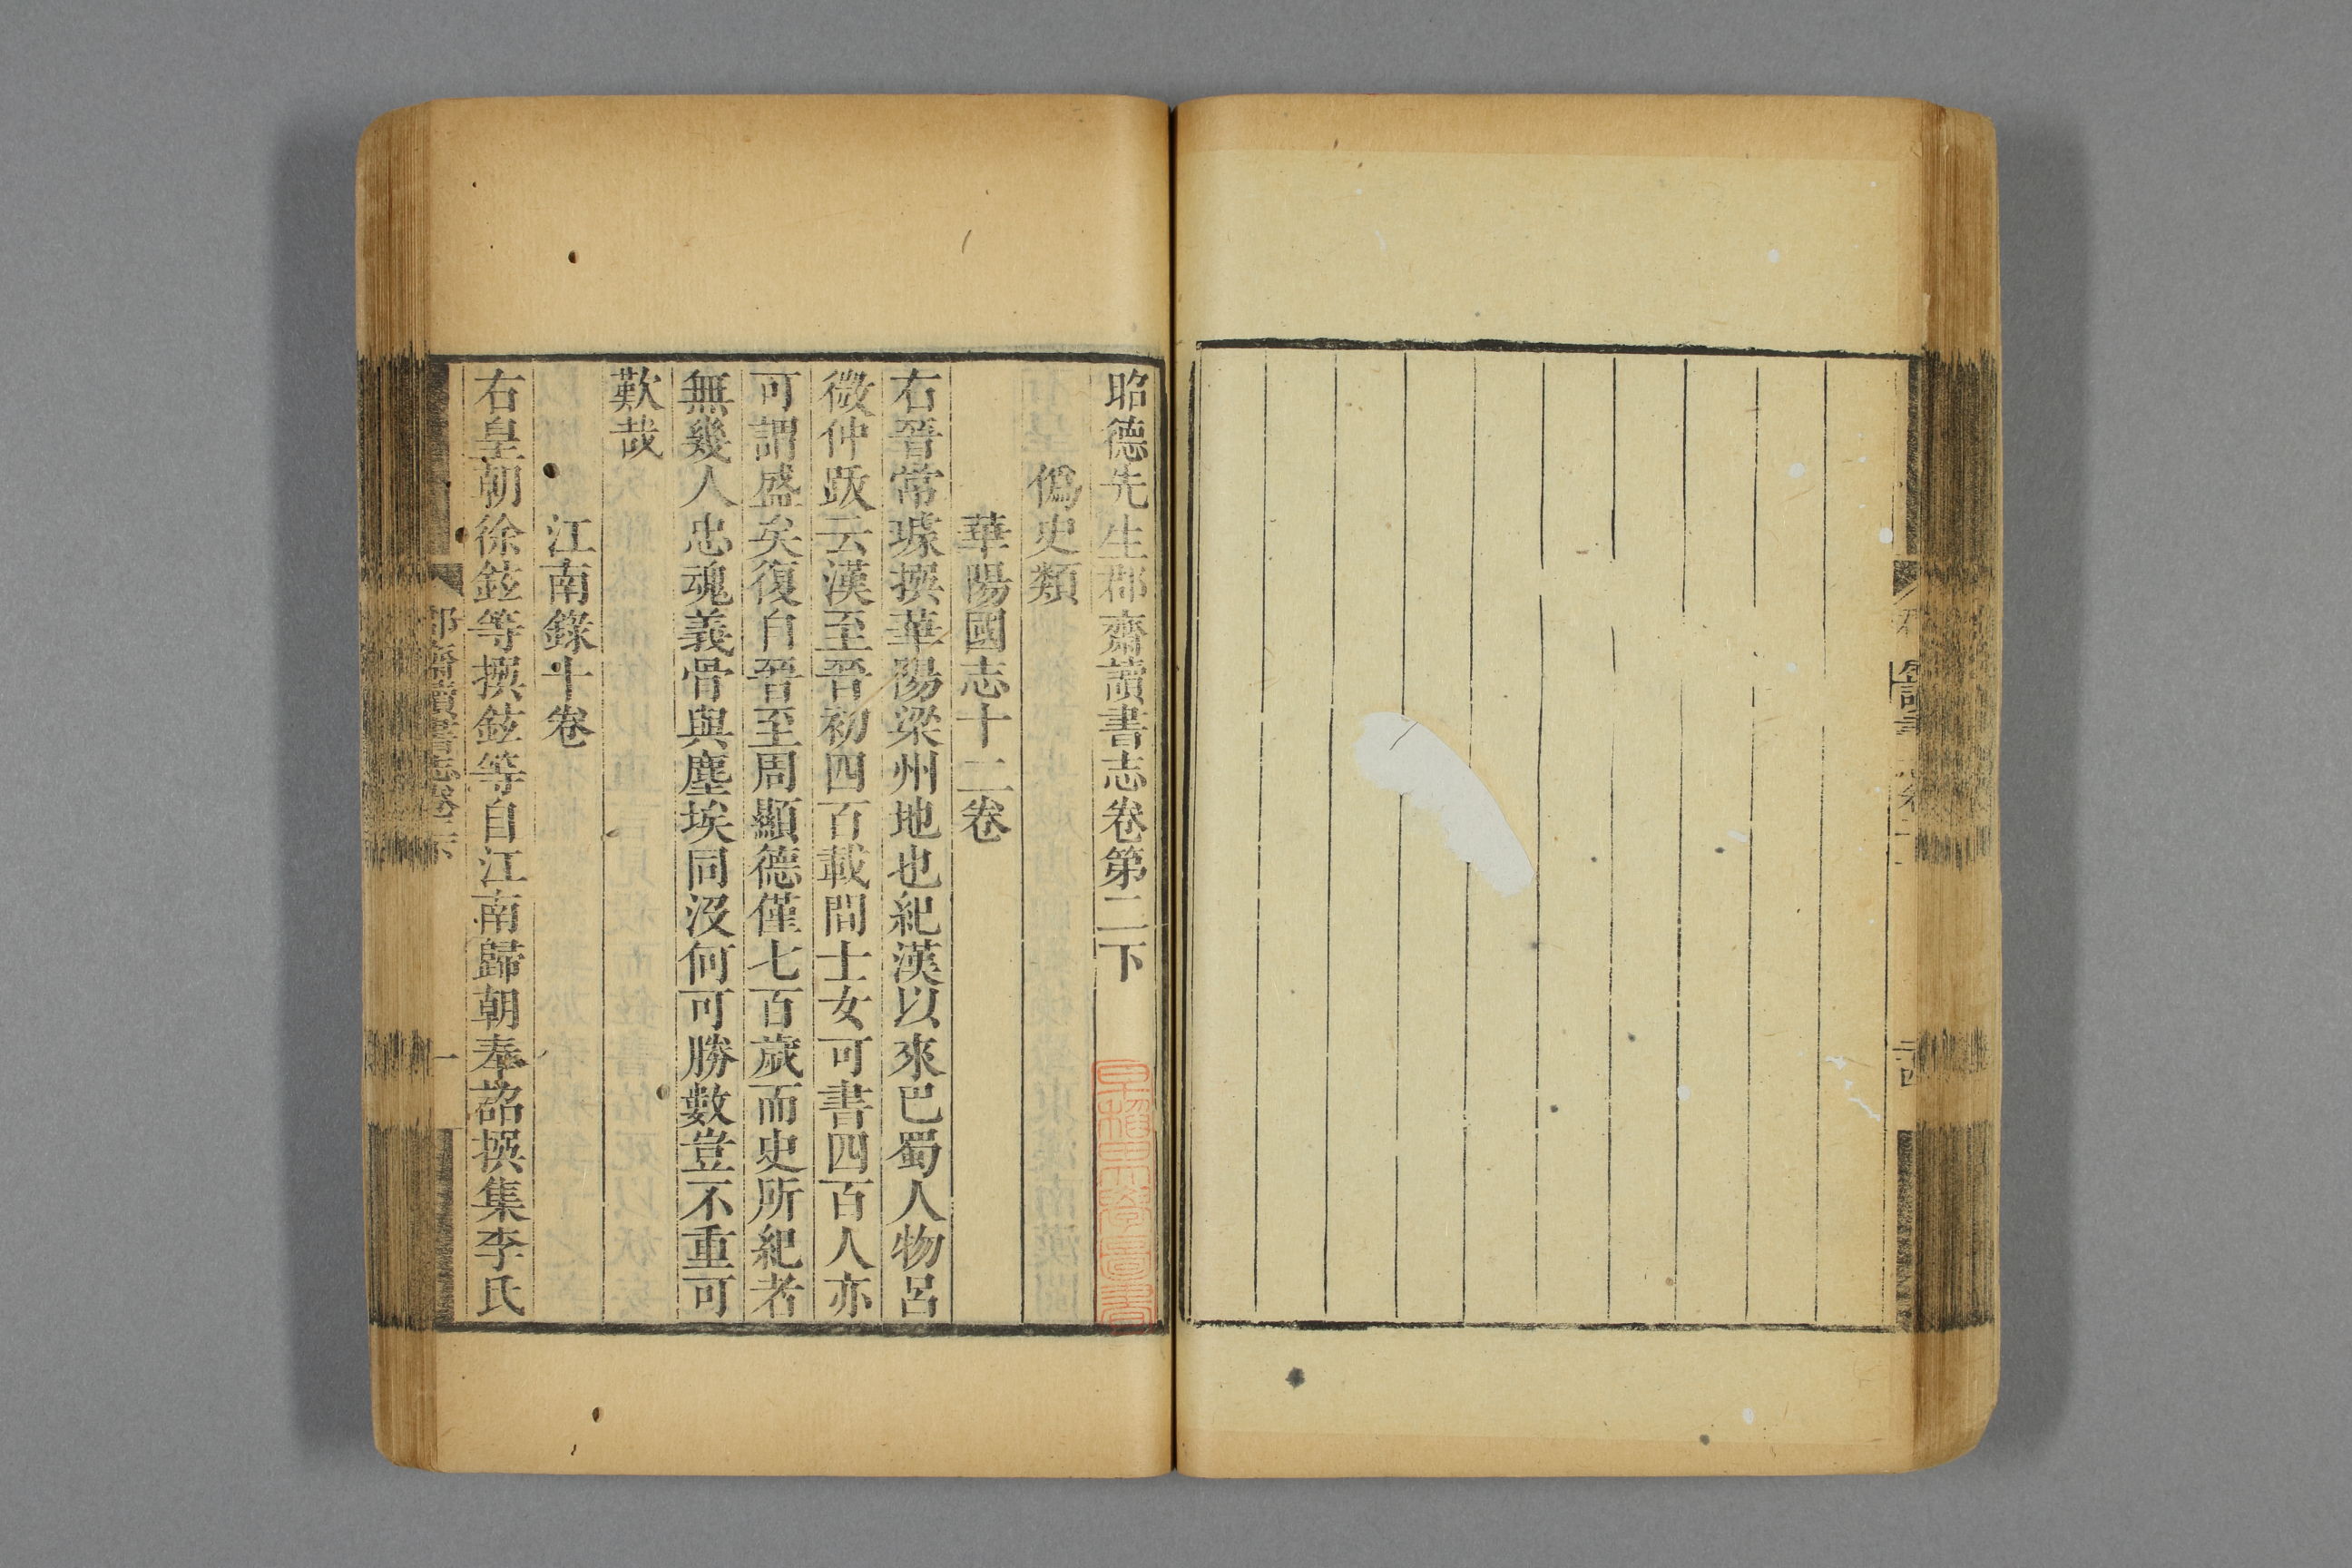 昭德先生郡齋讀書志卷第二下
僞史類
華陽國志十二卷
右晉常璩撰華陽梁州地也紀漢以來巴蜀人物呂
微仲跋云漢至晉初四百載間士女可書四百人亦
可謂盛矣復自晉至周顯德僅七百歲而史所紀者
無幾人忠魂義骨與塵埃同沒何可勝數豈不重可
歎哉
江南錄十卷
右皇朝徐鉉等撰鉉等自江南歸朝奉詔撰集李氏
郡齋讀書志卷二下
一